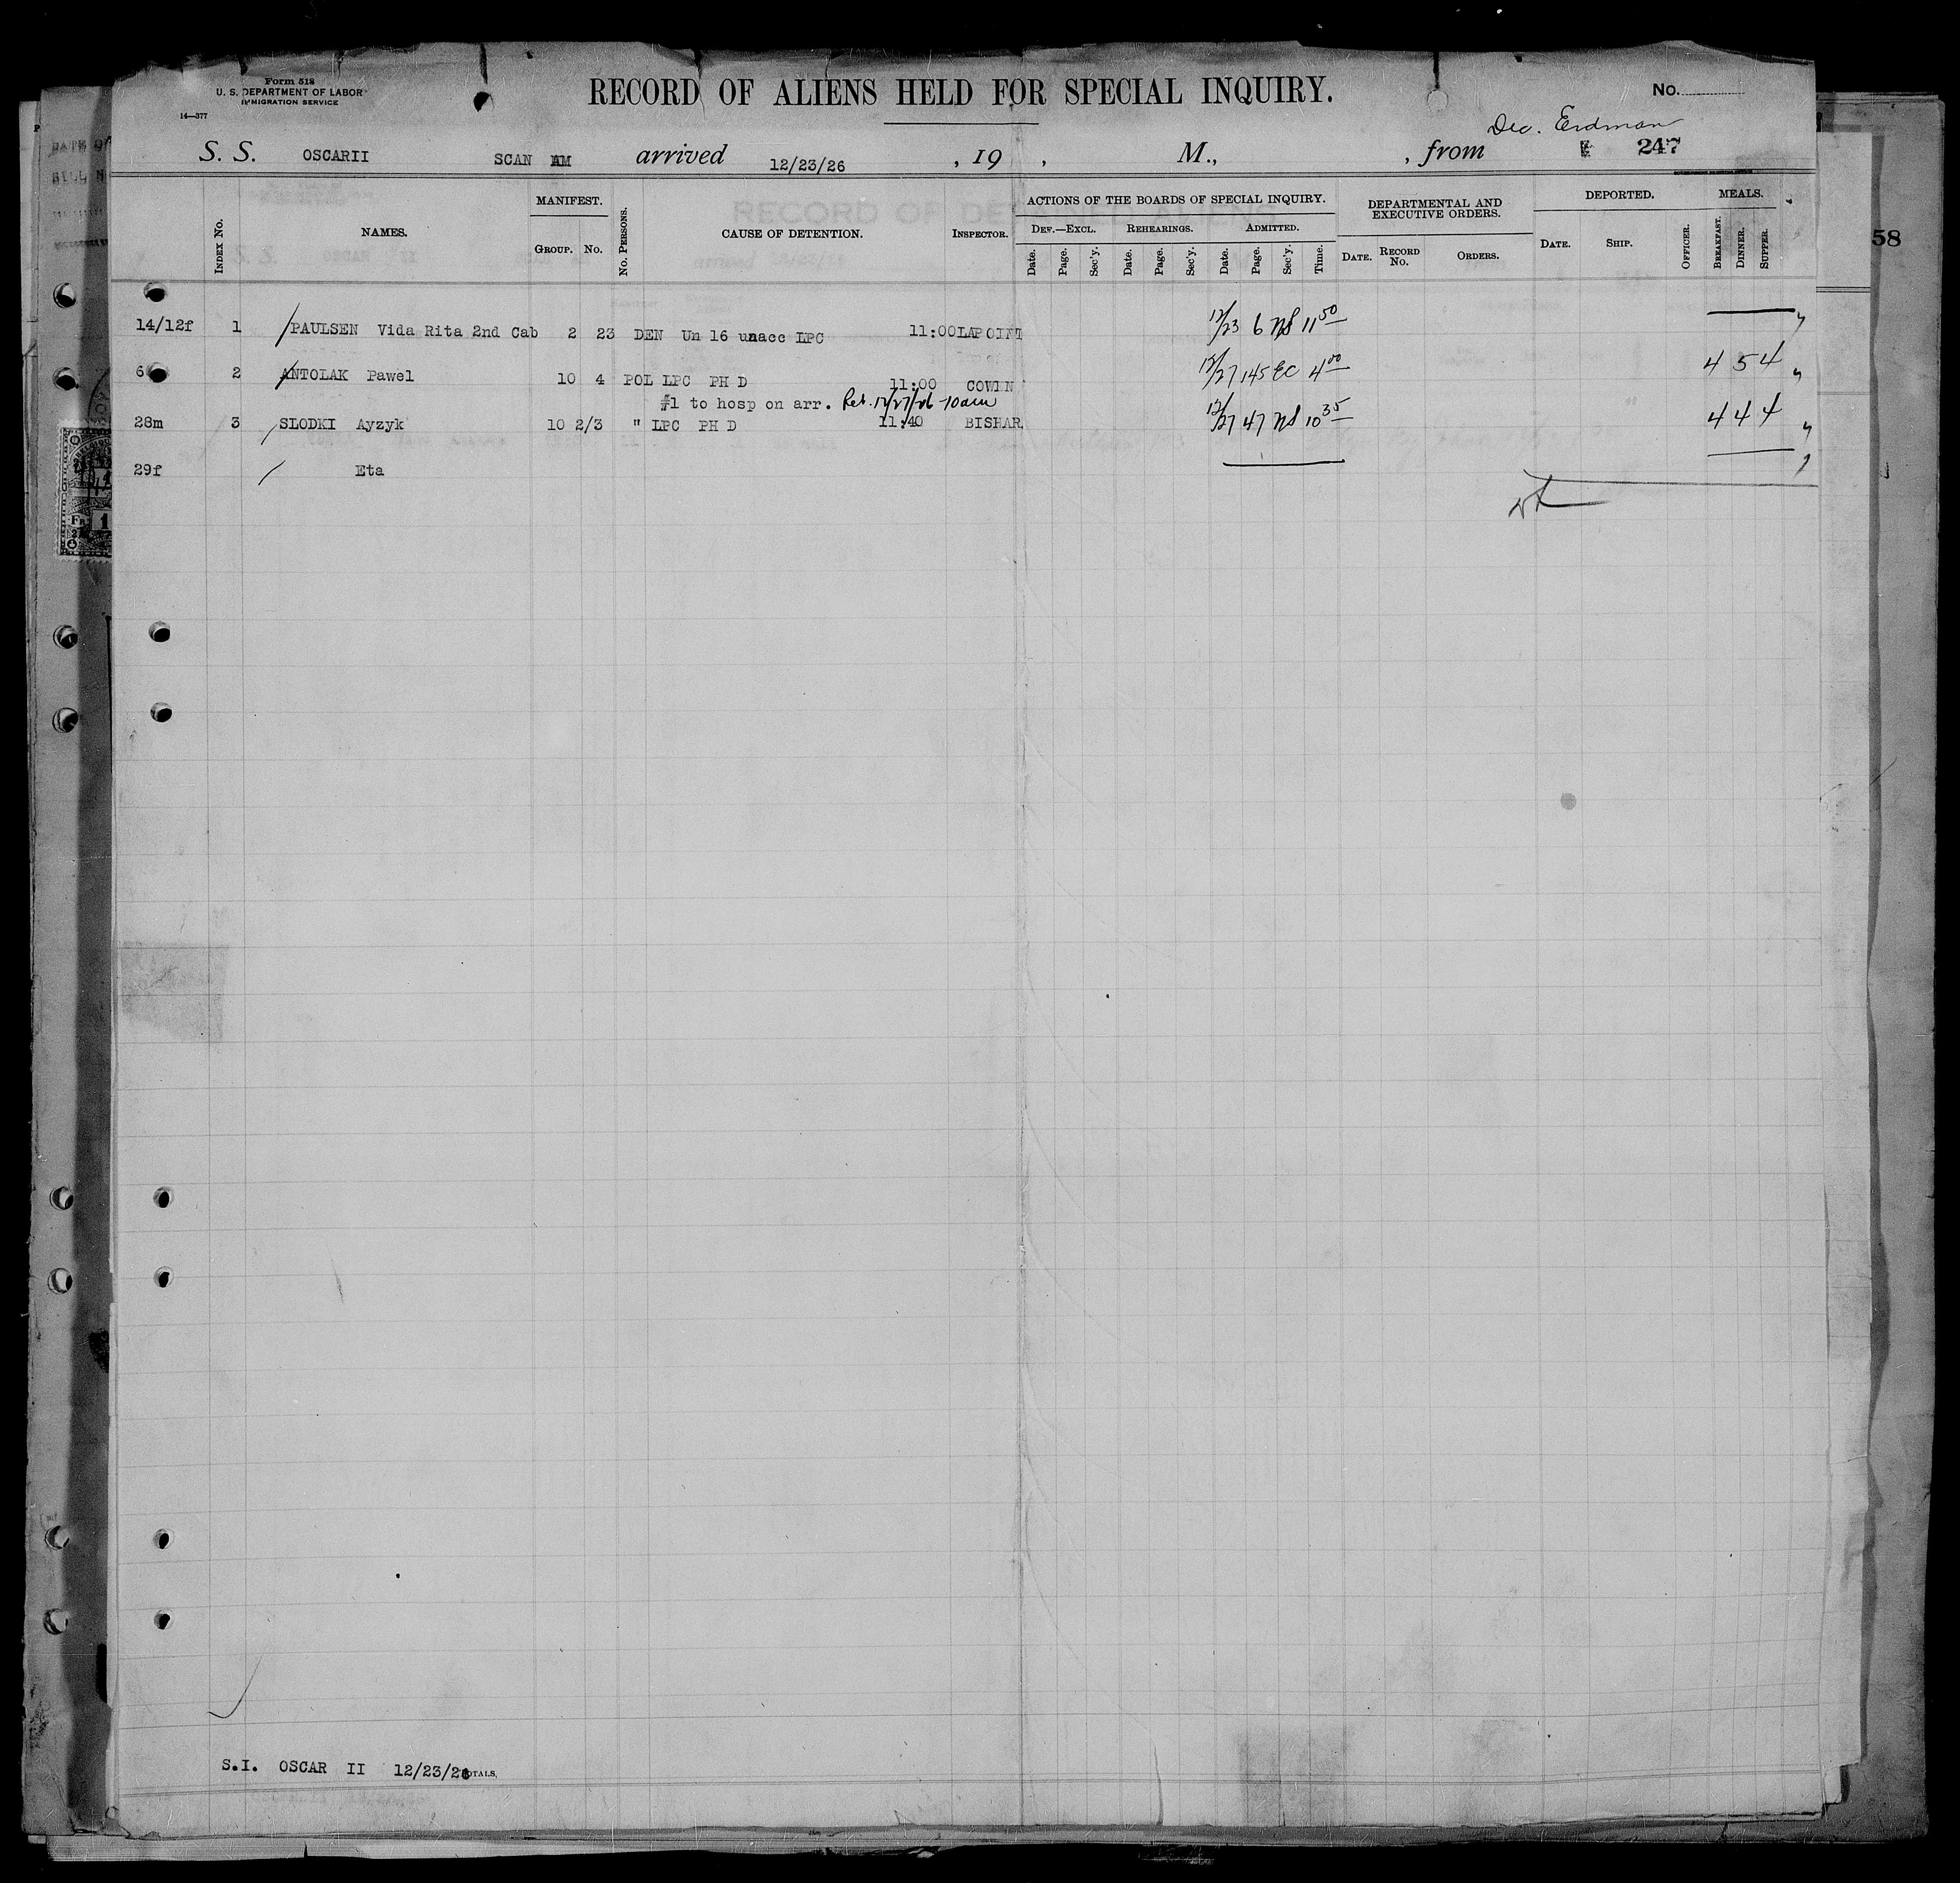 Form 518
U. S. DEPARTMENT OF LABOR
IMMIGRATION SERVICE
14—377
RECORD OF ALIENS HELD FOR SPECIAL INQUIRY.
No.
Dec. Erdman
S. S. OSCARII SCAN AM arrived 12/23/26 , 19 , M., , from 247
INDEX NO. NAMES. MANIFEST. GROUP. NO. NO. PERSONS. CAUSE OF DETENTION. INSPECTOR. ACTIONS OF THE BOARDS OF SPECIAL INQUIRY. DEF.—EXCL. Date. Page. Sec'y. REHEARINGS. Date. Page. Sec'y. ADMITTED. Date. Page. Sec'y. Time. DEPARTMENTAL AND EXECUTIVE ORDERS. DATE. RECORD NO. ORDERS. DEPORTED. DATE. SHIP. OFFICER. MEALS. BREAKFAST. DINNER. SUPPER.
58
14/12f 1 PAULSEN Vida Rita 2nd Cab 2 23 DEN Un 16 unacc LPC 11:00 LAPOINT 12/23 6 NS 11 50
6 2 ANTOLAK Pawel 10 4 POL LPC PH D 11:00 COWEN 12/27 145 EC 4 00 4 5 4
#1 to hosp on arr. Ret. 12/27/26 -10am
28m 3 SLODKI Ayzyk 10 2/3 " LPC PH D 11:40 BISHAR 12/27 47 NS 10 35 4 4 4
29f Eta
S.I. OSCAR II 12/23/26 TOTALS.